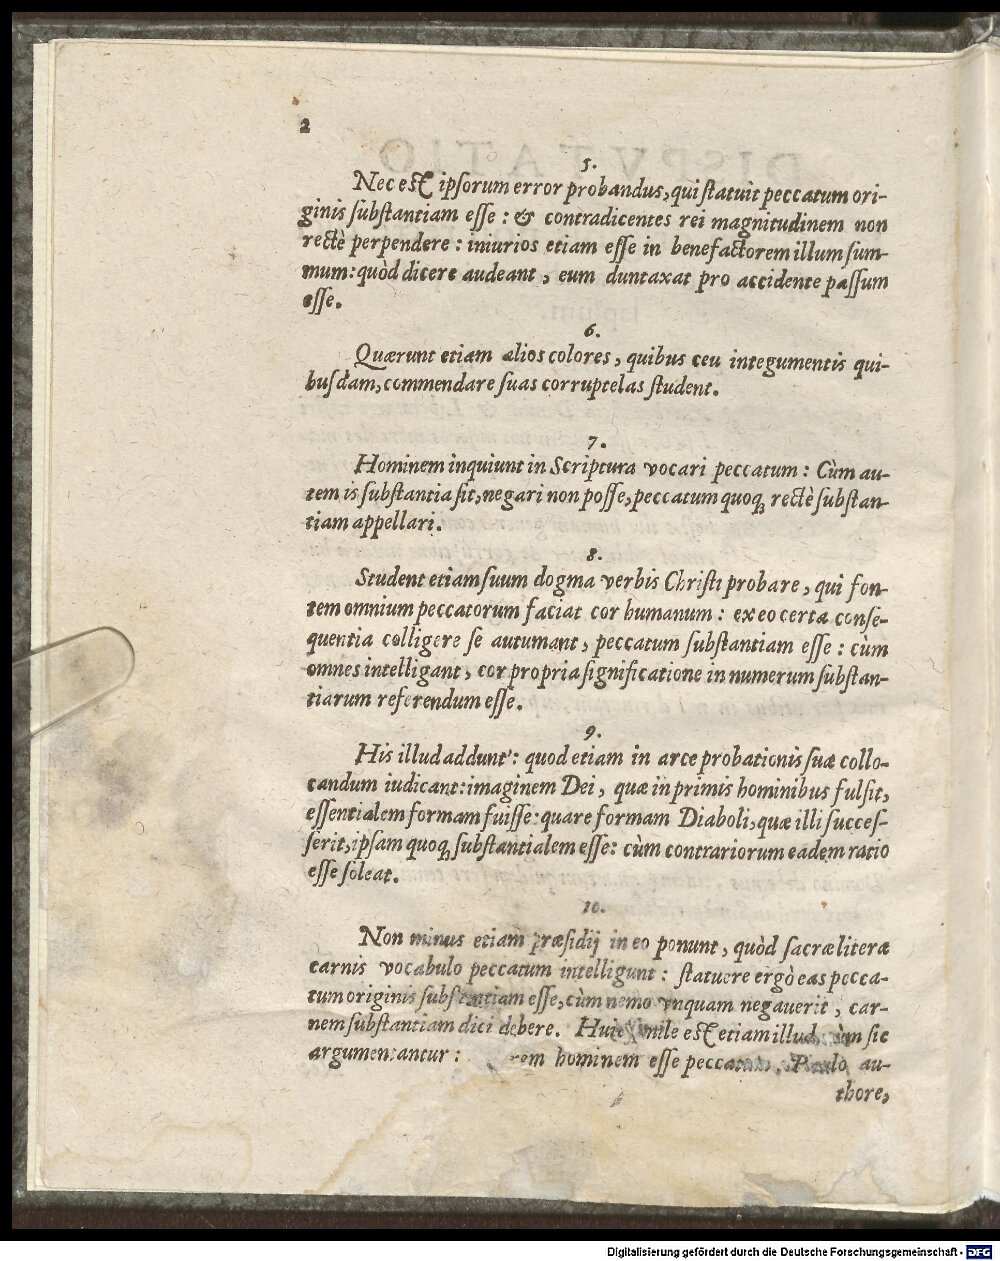 2
5.
Nec est ipsorum error probandus, qui statuit peccatum ori-
ginis substantiam esse: & contradicentes rei magnitudinem non
rectè perpendere: iniurios etiam esse in benefactorem illum sum-
mum: quòd dicere audeant, eum duntaxat pro accidente passum
esse.
6.
Quærunt etiam alios colores, quibus ceu integumentis qui-
busdam, commendare suas corruptelas student.
7.
Hominem inquiunt in Scriptura vocari peccatum: Cùm au-
tem is substantia sit, negari non posse, peccatum quoq; rectè substan-
tiam appellari.
8.
Student etiam suum dogma verbis Christi probare, qui fon-
tem omnium peccatorum faciat cor humanum: ex eo certa conse-
quentia colligere se autumant, peccatum substantiam esse: cùm
omnes intelligant, cor propria significatione in numerum substan-
tiarum referendum esse.
9.
His illud addunt: quod etiam in arce probationis suæ collo-
candum iudicant: imaginem Dei, quæ in primis hominibus fulsit,
essentialem formam fuisse: quare formam Diaboli, quæ illi succes-
serit, ipsam quoq; substantialem esse: cùm contrariorum eadem ratio
esse soleat.
10.
Non minus etiam præsidij in eo ponunt, quòd sacræ literæ
carnis vocabulo peccatum intelligunt: statuere ergò eas pecca-
tum originis substantiam esse, cùm nemo vnquam negauerit, car-
nem substantiam dici debere. Huic simile est etiam illud, cùm sic
argumentantur: hominem esse peccatum, Paulo au-
thore,
Digitalisierung gefördert durch die Deutsche Forschungsgemeinschaft - DFG